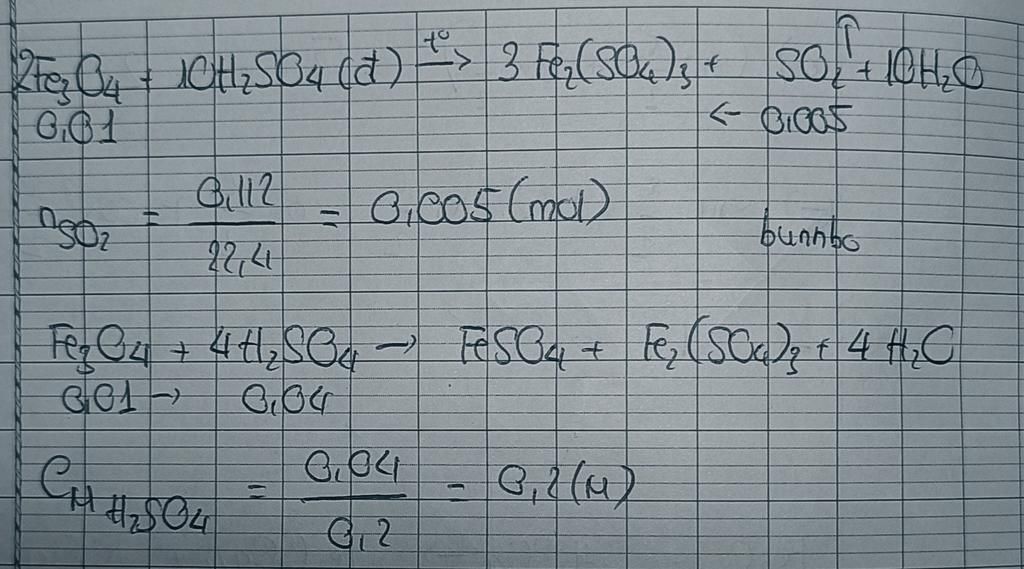 2Fe₃O₄ + 10H₂SO₄ (đ) —t°→ 3Fe₂(SO₄)₃ + SO₂↑ + 10H₂O
0,01 ← 0,005
nSO₂ = 0,112 / 22,4 = 0,005 (mol)
bunnbo
Fe₃O₄ + 4H₂SO₄ → FeSO₄ + Fe₂(SO₄)₃ + 4H₂O
0,01 → 0,04
CM H₂SO₄ = 0,04 / 0,2 = 0,2 (M)